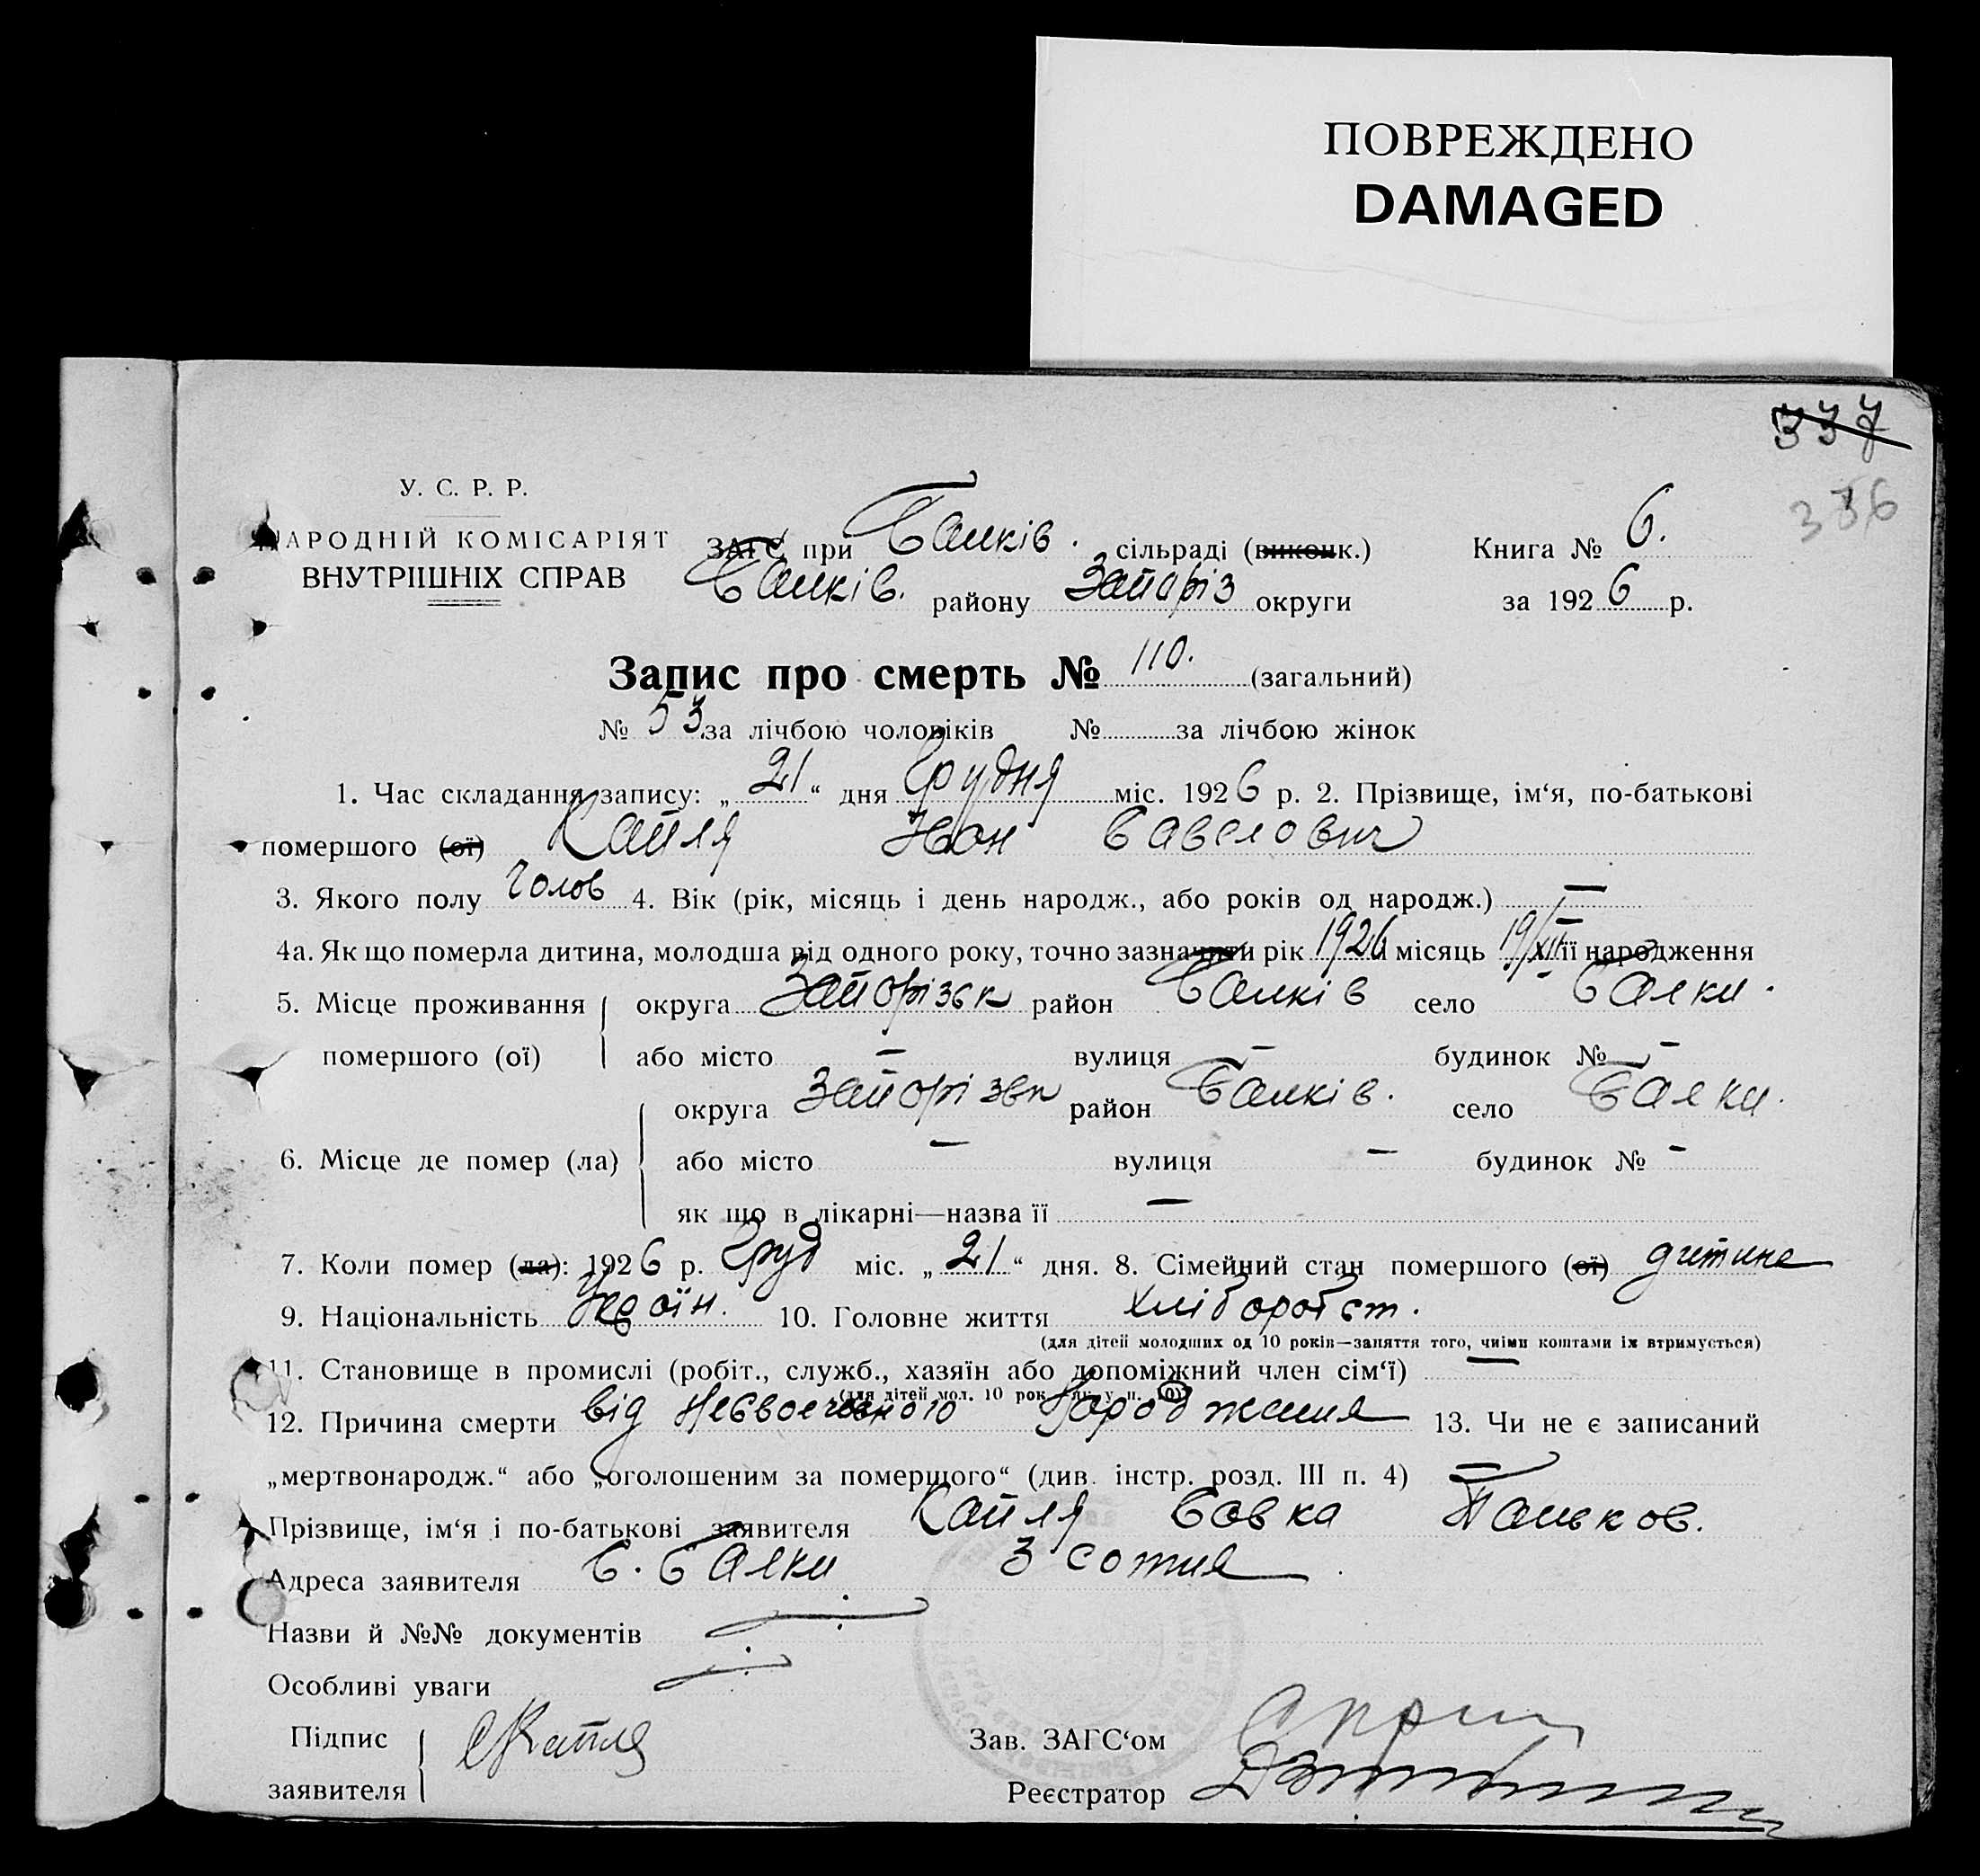 ПОВРЕЖДЕНО
DAMAGED
337
336
У. С. Р. Р.
НАРОДНІЙ КОМІСАРІЯТ
ВНУТРІШНІХ СПРАВ
ЗАГС при Балків. сільраді (виконк.) Книга № 6.
Балків. району Запоріз округи за 1926 р.
Запис про смерть № 110. (загальний)
№ 53 за лічбою чоловіків № за лічбою жінок
1. Час складання запису: „21“ дня Грудня міс. 1926 р. 2. Прізвище, ім‘я, по-батькові
помершого (ої) Капля Іван Савелович
3. Якого полу Чолов 4. Вік (рік, місяць і день народж., або років од народж.) —
4а. Як що померла дитина, молодша від одного року, точно зазначити рік 1926 місяць 19/XII її народження
5. Місце проживання округа Запорізьк район Балків село Балки.
помершого (ої) або місто — вулиця — будинок № —
округа Запорізьк район Балків. село Балки.
6. Місце де помер (ла) або місто — вулиця — будинок № —
як що в лікарні—назва її —
7. Коли помер (ла): 1926 р. Груд міс. „21“ дня. 8. Сімейний стан помершого (ої) дитина
9. Національність Україн. 10. Головне життя хліборобст.
(для дітей молодших од 10 років—заняття того, чиїми коштами їх втримується)
11. Становище в промислі (робіт., служб., хазяїн або допоміжний член сім‘ї) —
(для дітей мол. 10 рок. як у п. 10)
12. Причина смерти від Несвоечасного Народження 13. Чи не є записаний
„мертвонародж.“ або „оголошеним за помершого“ (див. інстр. розд. III п. 4) —
Прізвище, ім‘я і по-батькові заявителя Капля Савка Паньков.
Адреса заявителя С. Балки 3 сотня
Назви й №№ документів
Особливі уваги
Підпис
заявителя СКапля
Зав. ЗАГС‘ом
Реєстратор